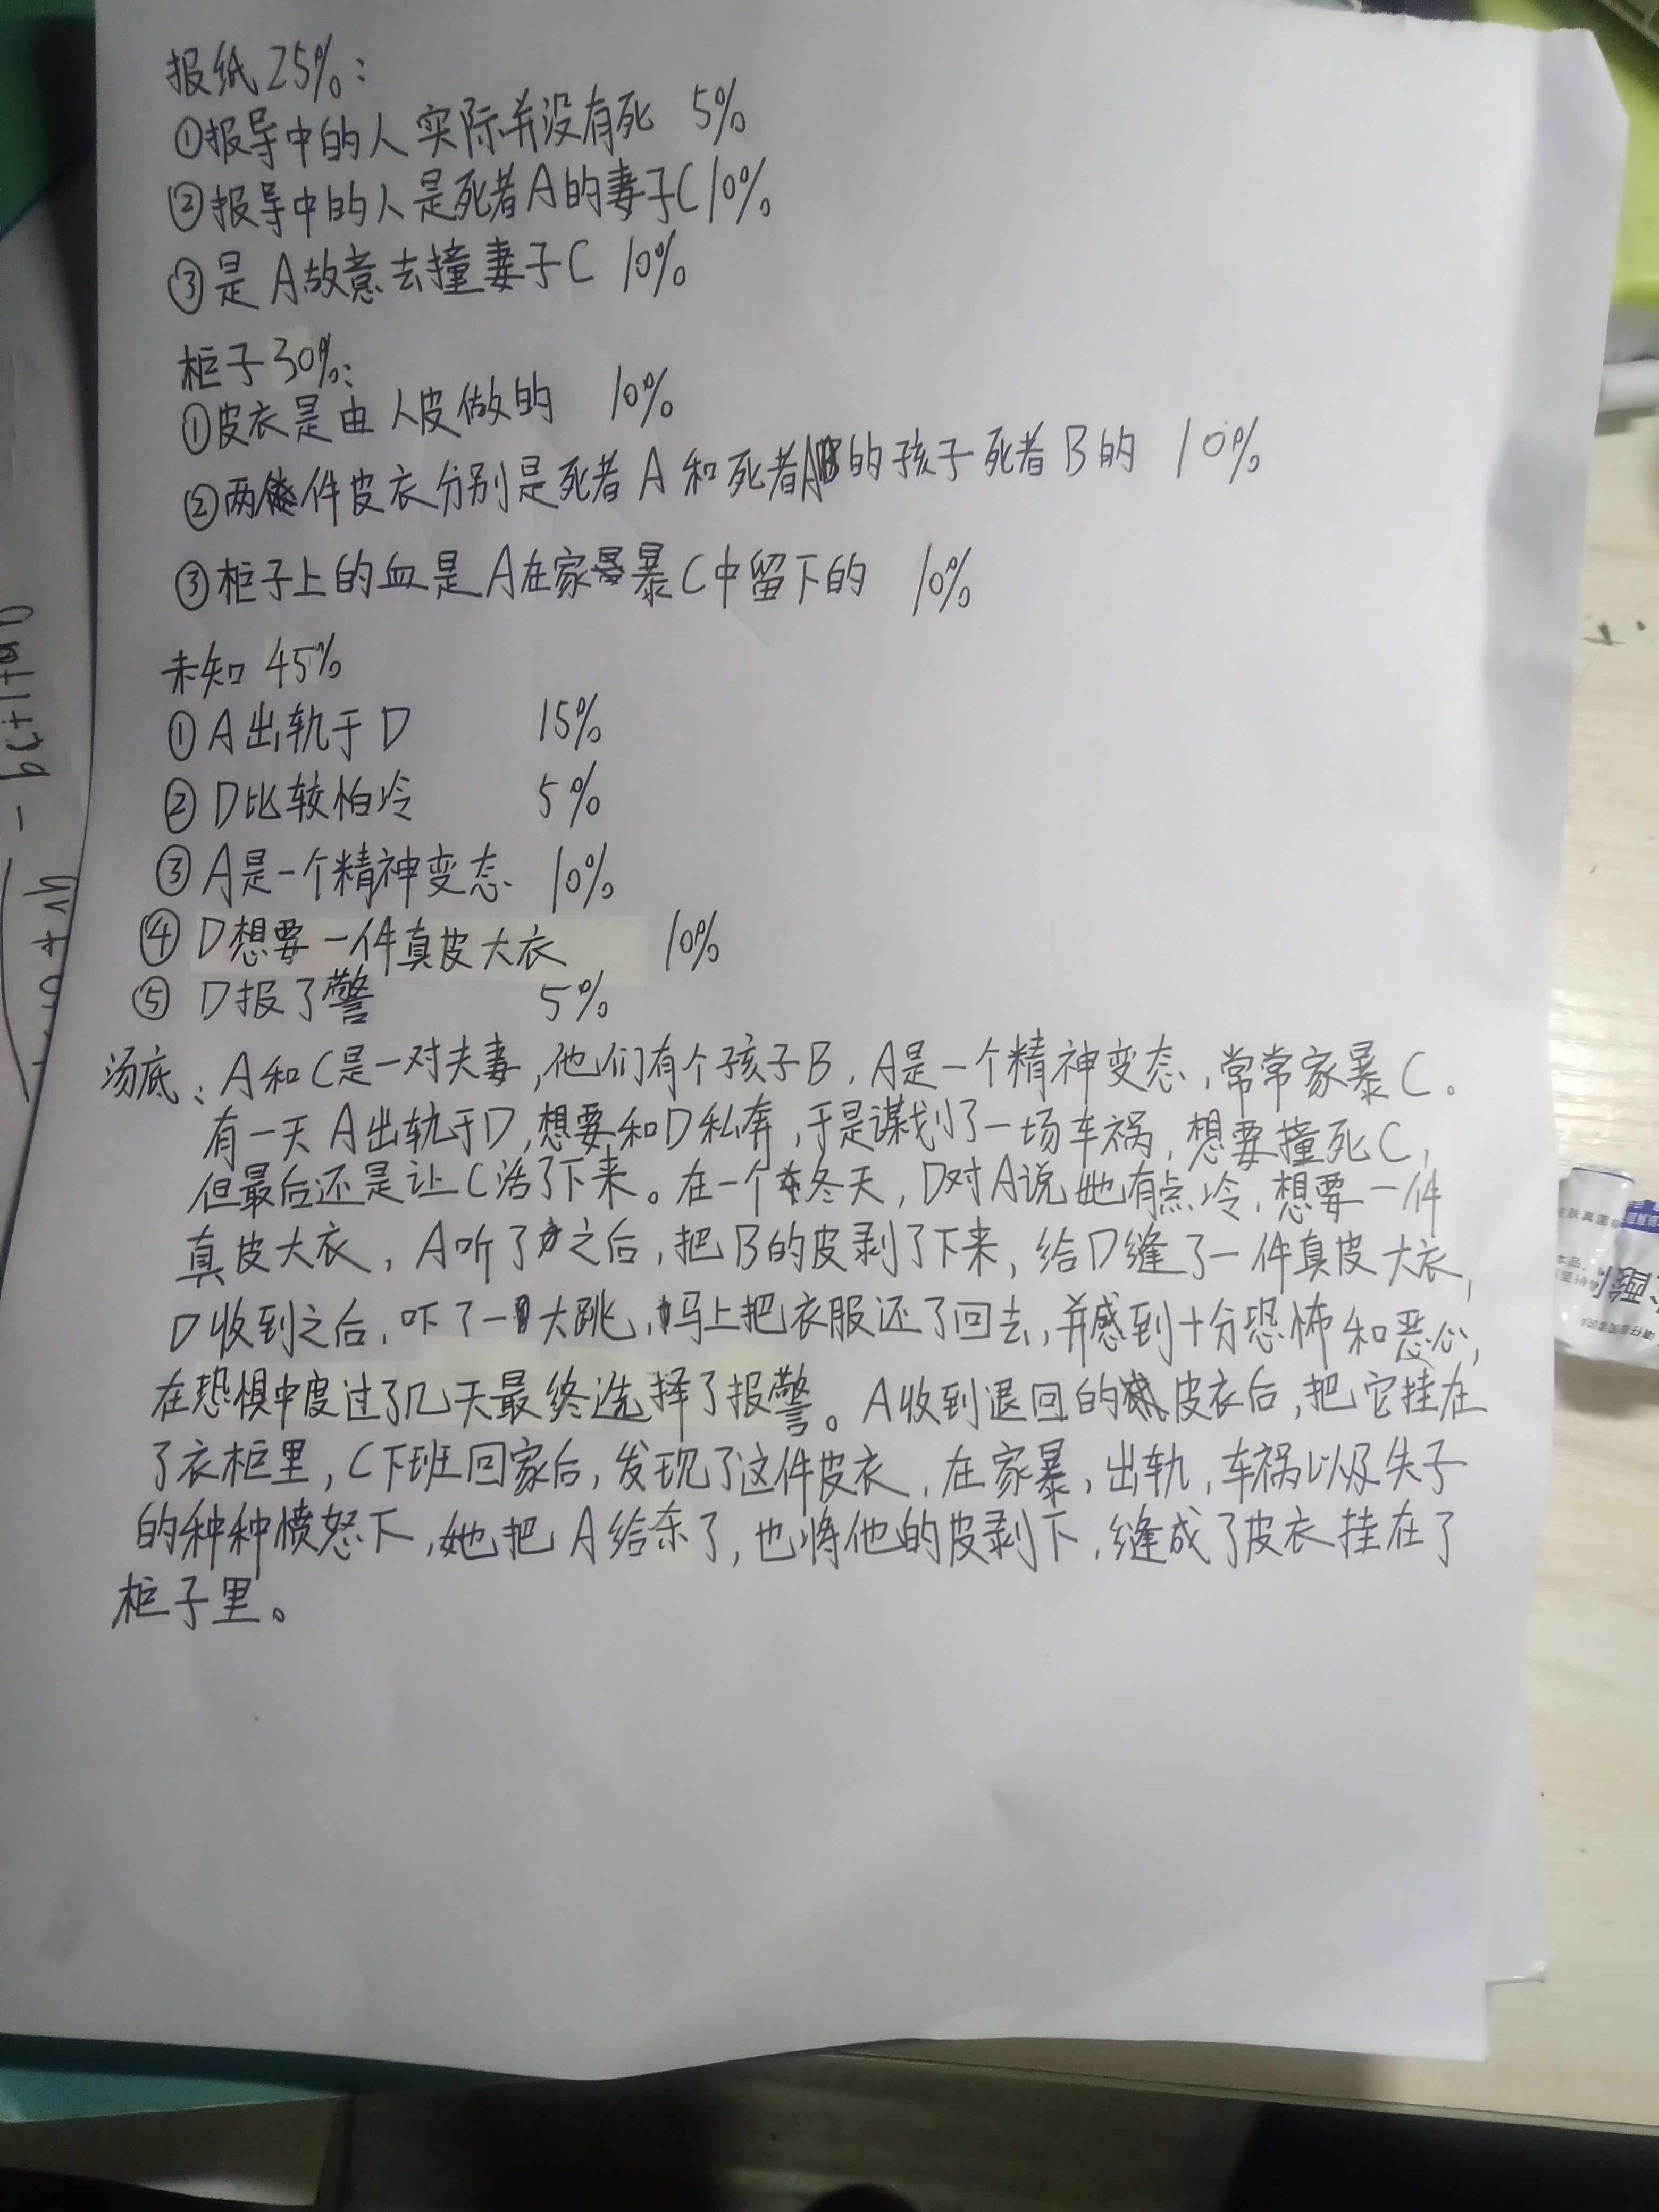 报纸25%：
①报导中的人实际并没有死 5%
②报导中的人是死者A的妻子C10%
③是A故意去撞妻子C 10%
柜子30%：
①皮衣是由人皮做的 10%
②两件皮衣分别是死者A和死者A的孩子死者B的 10%
③柜子上的血是A在家暴C中留下的 10%
未知45%
①A出轨于D 15%
②D比较怕冷 5%
③A是一个精神变态 10%
④D想要一件真皮大衣 10%
⑤D报了警 5%
汤底：A和C是一对夫妻，他们有个孩子B，A是一个精神变态，常常家暴C。
有一天A出轨于D，想要和D私奔，于是谋划了一场车祸，想要撞死C，
但最后还是让C活了下来。在一个冬天，D对A说她有点冷，想要一件
真皮大衣，A听了之后，把B的皮剥了下来，给D缝了一件真皮大衣，
D收到之后，吓了一大跳，马上把衣服还了回去，并感到十分恐怖和恶心，
在恐惧中度过了几天最终选择了报警。A收到退回的皮衣后，把它挂在
了衣柜里，C下班回家后，发现了这件皮衣，在家暴，出轨，车祸以及失子
的种种愤怒下，她把A给杀了，也将他的皮剥下，缝成了皮衣挂在了
柜子里。